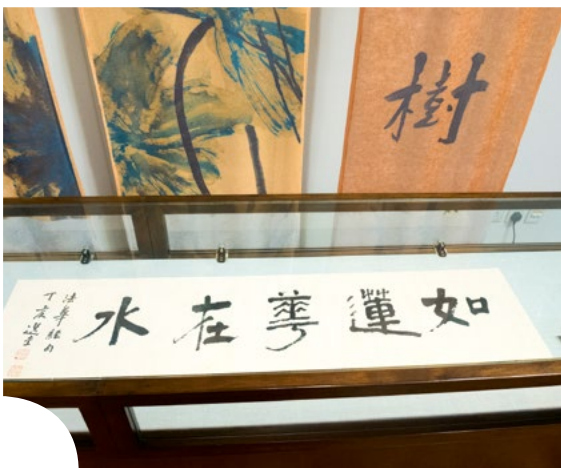 樹
如蓮華在水
法華經句
丁亥 選堂